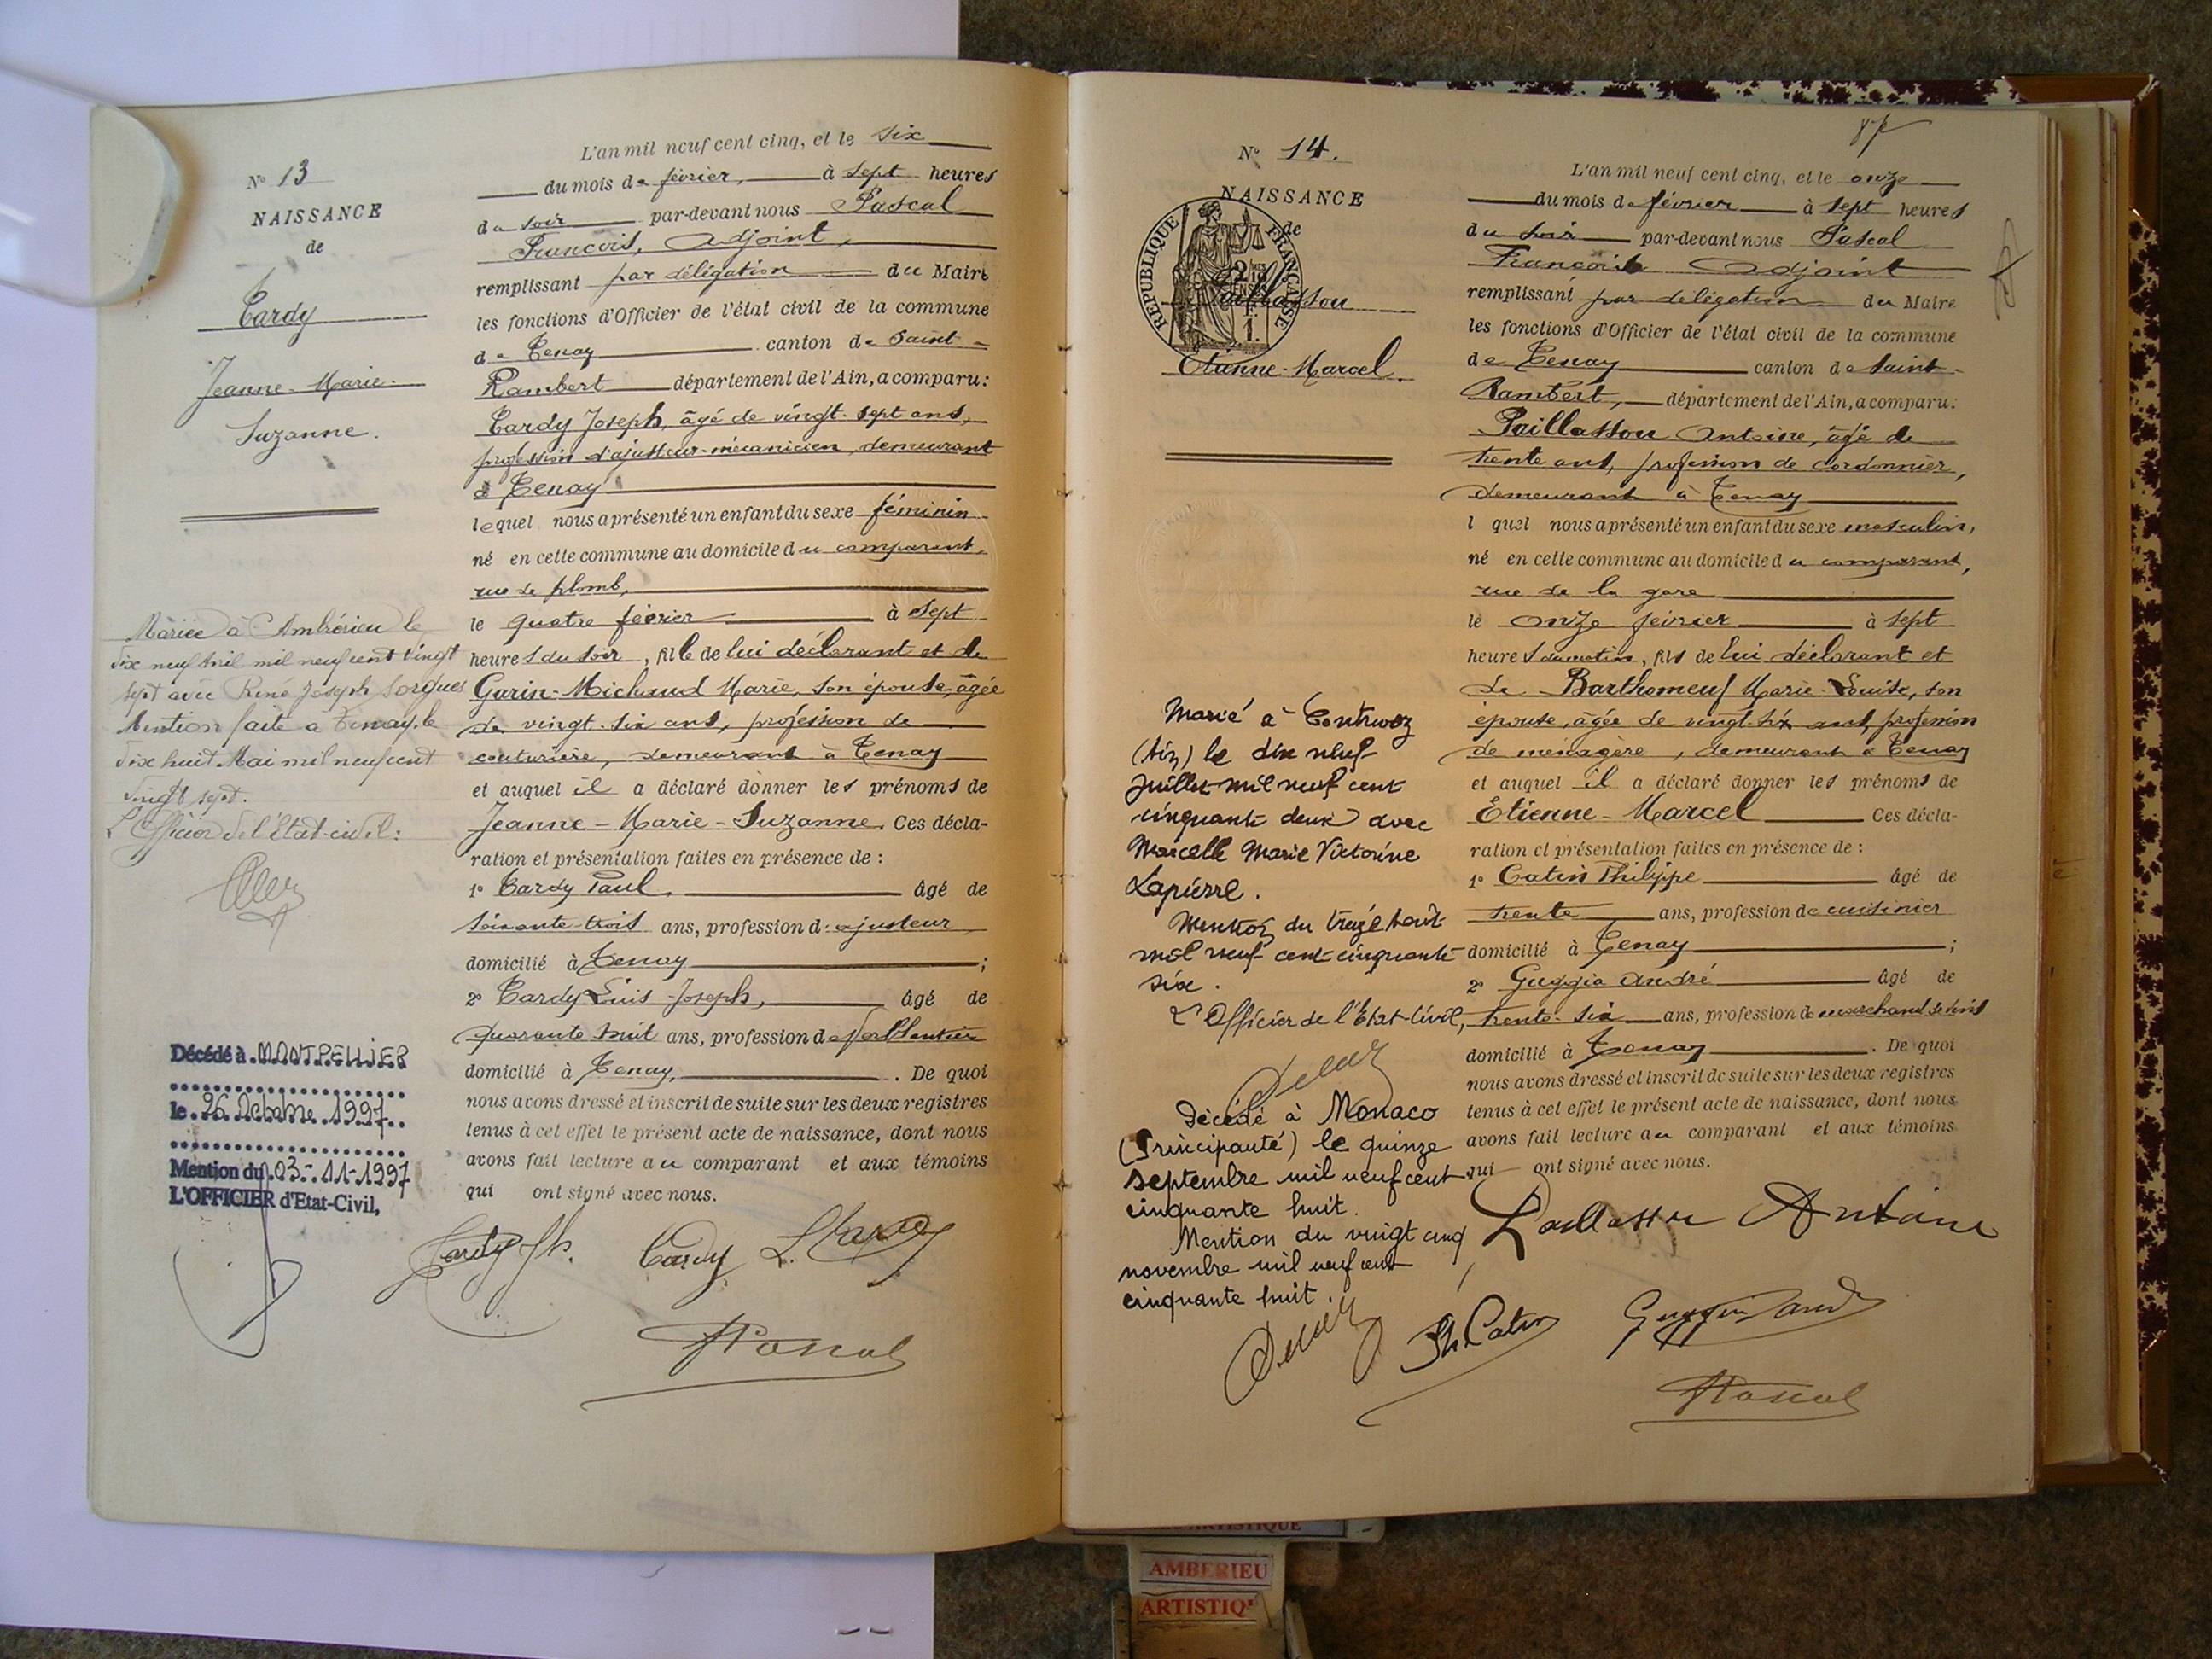 N° 13
NAISSANCE
de
Tardy
Jeanne-Marie-
Suzanne.
Mariée à Ambérieu le
dix neuf Avril mil neuf cent vingt
sept avec René Joseph Sorgues
Mention faite a Tenay, le
dix huit Mai mil neuf cent
vingt sept.
L'Officier de l'Etat-civil:
Décédé à MONTPELLIER
le 26 Octobre 1997
Mention du 03-11-1997
L'OFFICIER d'Etat-Civil,
L'an mil neuf cent cinq, et le six
du mois de février, à sept heures
du soir par-devant nous Pascal
François, Adjoint,
remplissant par délégation du Maire
les fonctions d'Officier de l'état civil de la commune
de Tenay canton de Saint-
Rambert département de l'Ain, a comparu:
Tardy Joseph, âgé de vingt-sept ans,
profession d'ajusteur-mécanicien, demeurant
à Tenay
lequel nous a présenté un enfant du sexe féminin
né en cette commune au domicile du comparant,
rue de plomb,
le quatre février à sept
heures du soir, fille de lui déclarant et de
Garin-Michaud Marie, son épouse, âgée
de vingt-six ans, profession de
couturière, demeurant à Tenay
et auquel il a déclaré donner les prénoms de
Jeanne-Marie-Suzanne. Ces décla-
ration et présentation faites en présence de :
1° Tardy Paul, âgé de
soixante-trois ans, profession d'ajusteur
domicilié à Tenay ;
2° Tardy Louis-Joseph, âgé de
quarante huit ans, profession de ferblantier
domicilié à Tenay, . De quoi
nous avons dressé et inscrit de suite sur les deux registres
tenus à cet effet le présent acte de naissance, dont nous
avons fait lecture au comparant et aux témoins
qui ont signé avec nous.
Tardy Jh. Tardy L. Tardy
Pascal
N° 14.
NAISSANCE
de
RÉPUBLIQUE FRANÇAISE
Paillassou
Etienne-Marcel.
Marié à Contrevoz
(Ain) le dix neuf
juillet mil neuf cent
cinquante deux avec
Marcelle Marie Victorine
Lapierre.
Mention du treize août
mil neuf cent cinquante
six.
L'Officier de l'Etat-Civil,
Décédé à Monaco
(Principauté) le quinze
septembre mil neuf cent
cinquante huit.
Mention du vingt cinq
novembre mil neuf cent
cinquante huit.
L'an mil neuf cent cinq, et le onze
du mois de février à sept heures
du soir par-devant nous Pascal
François Adjoint
remplissant par délégation du Maire
les fonctions d'Officier de l'état civil de la commune
de Tenay canton de Saint-
Rambert, département de l'Ain, a comparu:
Paillassou Antoine, âgé de
trente ans, profession de cordonnier,
demeurant à Tenay
l quel nous a présenté un enfant du sexe masculin,
né en cette commune au domicile du comparant,
rue de la gare
le onze février à sept
heures du matin, fils de lui déclarant et
de Barthomeuf Marie-Louise, son
épouse, âgée de vingt-six ans, profession
de ménagère, demeurant à Tenay
et auquel il a déclaré donner les prénoms de
Etienne-Marcel Ces décla-
ration et présentation faites en présence de :
1° Catin Philippe âgé de
trente ans, profession de cuisinier
domicilié à Tenay ;
2° Guggia André âgé de
trente-six ans, profession de marchand de vins
domicilié à Tenay . De quoi
nous avons dressé et inscrit de suite sur les deux registres
tenus à cet effet le présent acte de naissance, dont nous
avons fait lecture au comparant et aux témoins
qui ont signé avec nous.
Paillassou Antoine
Ph. Catin
Pascal
AMBERIEU
ARTISTIQ